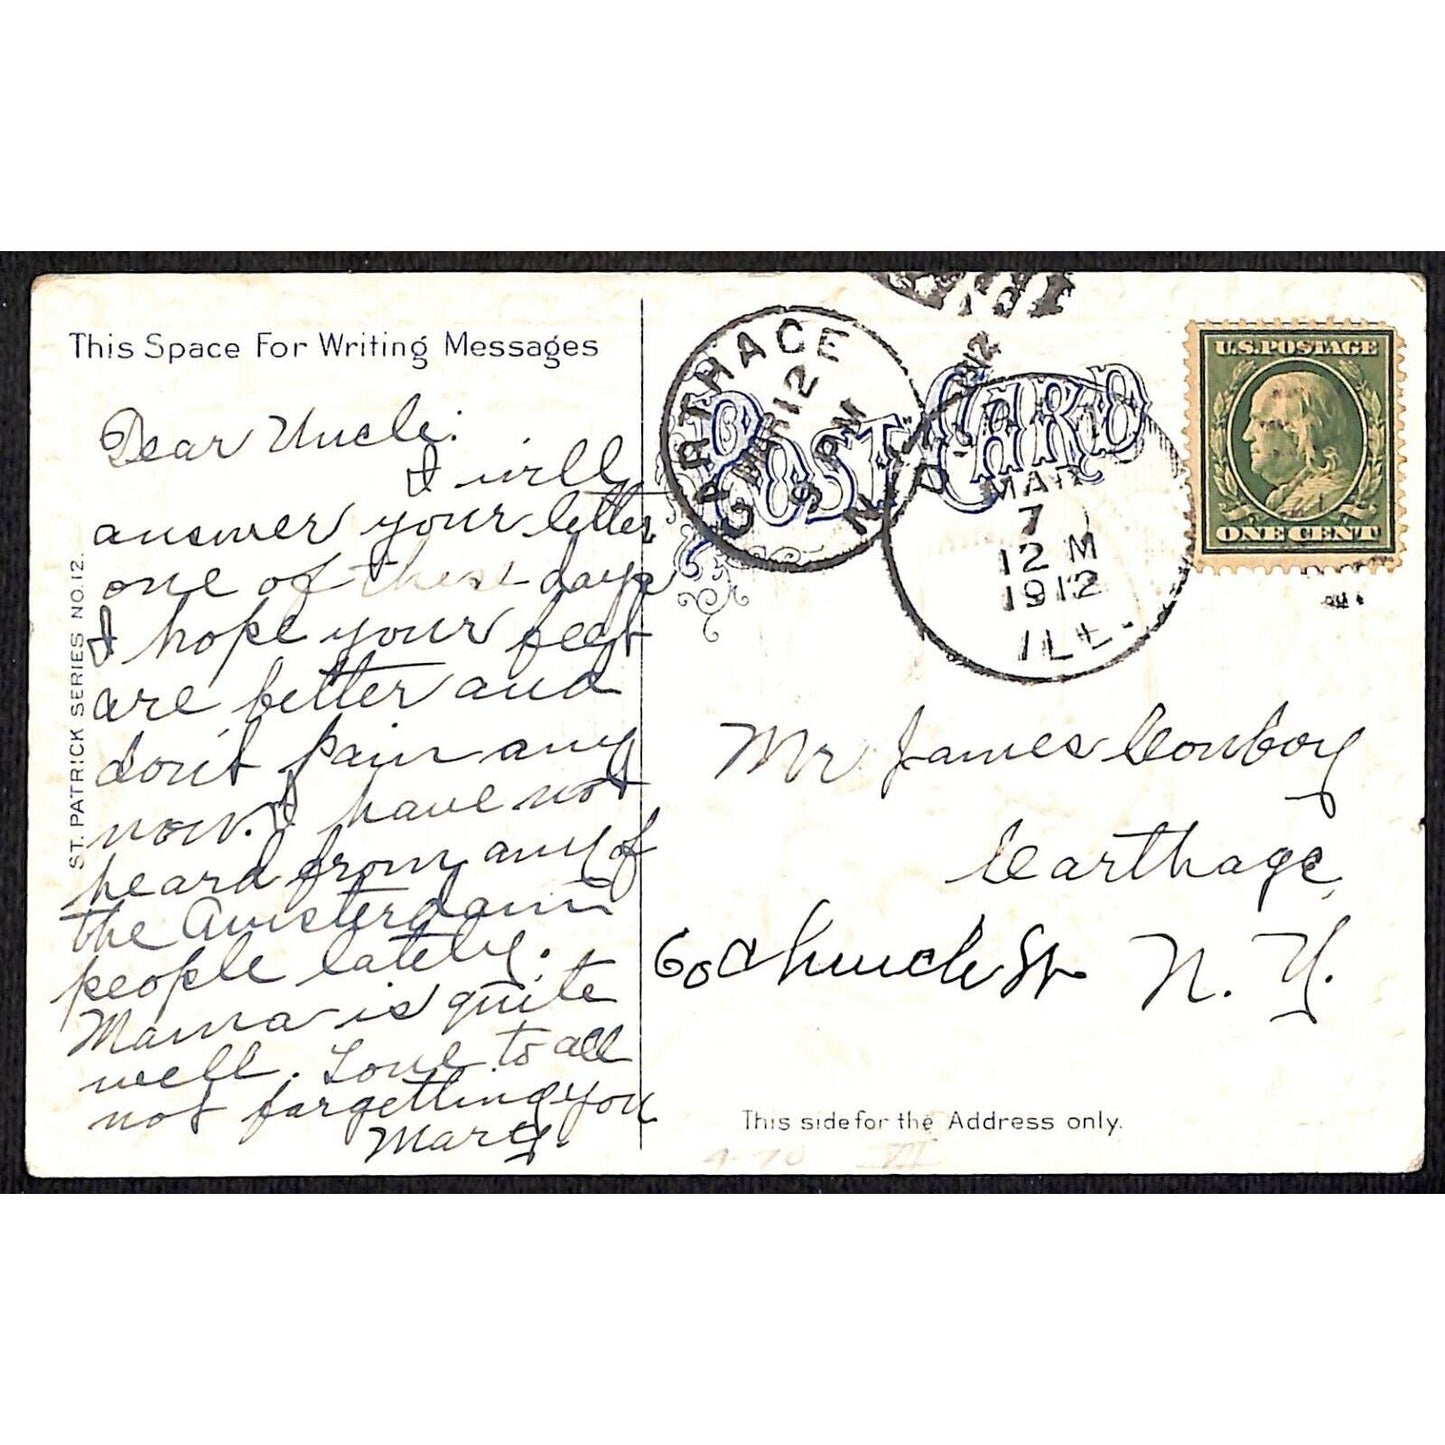 This Space For Writing Messages
Dear Uncle.
I will
answer your letter
one of these days
I hope your feet
are better and
don't pain any
now. I have not
heard from any of
the Amsterdam
people lately.
Mama is quite
well. Love to all
not forgetting you
Mary.
ST. PATRICK SERIES NO. 12.
POST CARD
CARTHAGE
MAR 12
9 PM
N.Y.
1912
MAR
7
12 M
1912
ILL.
U.S. POSTAGE
ONE CENT
Mr James Conboy
Carthage
60 Church St N. Y.
This side for the Address only.